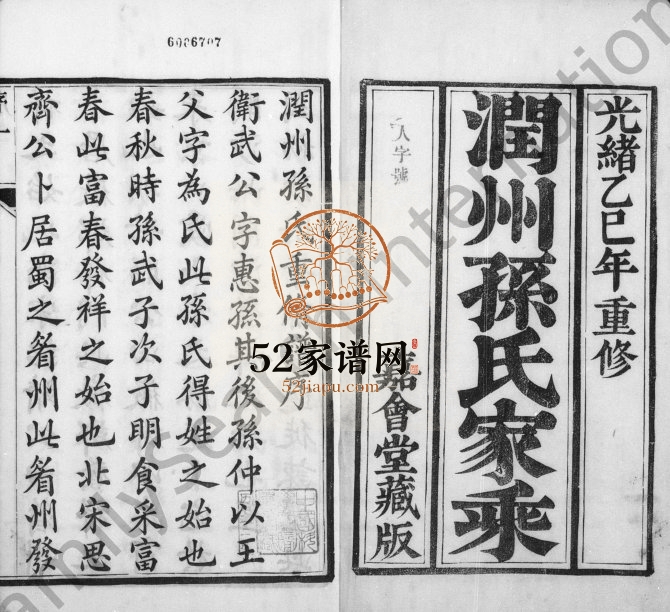 光緒乙巳年重修
潤州孫氏家乘
嘉會堂藏版
人字號
6086707
潤州孫氏重修譜序
衛武公字惠孫其後孫仲以王
父字為氏此孫氏得姓之始也
春秋時孫武子次子明食采富
春此富春發祥之始也北宋思
齊公卜居蜀之眷州此眷州發
52家谱网
52jiapu.com